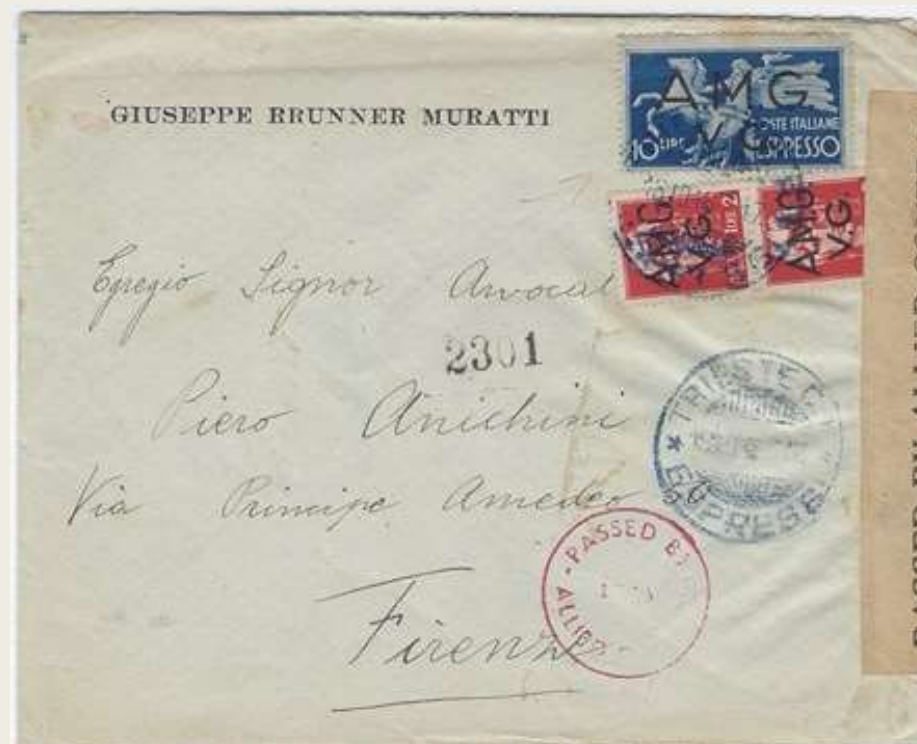 GIUSEPPE BRUNNER MURATTI
A.M.G.
V.G.
10 LIRE
POSTE ITALIANE
ESPRESSO
A.M.G.
V.G.
LIRE 2
A.M.G.
V.G.
Egregio Signor
2301
Piero Anichini
Via Principe Amedeo
Firenze
TRIESTE C.
* ESPRESSI
PASSED BY
ALLIED